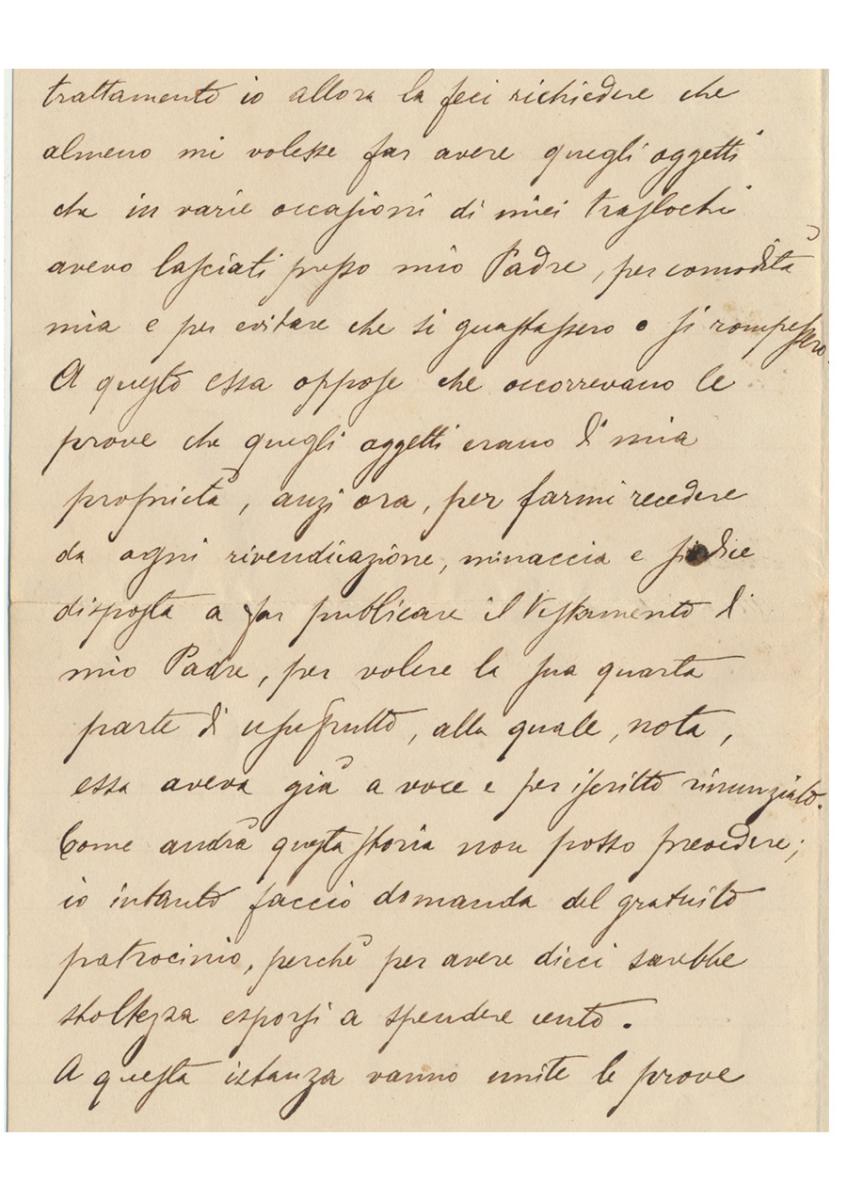 trattamento io allora la feci richiedere che
almeno mi volesse far avere quegli oggetti
che in varie occasioni di miei traslochi
avevo lasciati presso mio Padre, per comodità
mia e per evitare che si guastassero o si rompessero.
A questo essa oppose che occorrevano le
prove che quegli oggetti erano di mia
proprietà, anzi ora, per farmi recedere
da ogni rivendicazione, minaccia e si dice
disposta a far publicare il Testamento di
mio Padre, per volere la sua quarta
parte di usufrutto, alla quale, nota,
essa aveva già a voce e per iscritto rinunziato.
Come andrà questa storia non posso prevedere;
io intanto faccio domanda del gratuito
patrocinio, perchè per avere dieci sarebbe
stoltezza esporsi a spendere cento.
A questa istanza vanno unite le prove